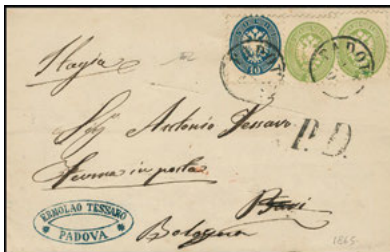 PADOVA
10
Italia
Sigr Antonio Tessaro
P.D.
Ferma in posta
Bari
Bologna
ERMOLAO TESSARO
PADOVA
1865